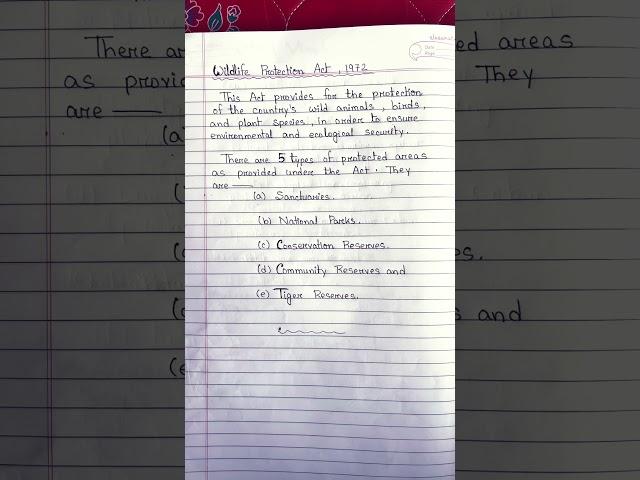 Wildlife Protection Act, 1972
Date
Page
This Act provides for the protection
of the country's wild animals, birds,
and plant species, in order to ensure
environmental and ecological security.
There are 5 types of protected areas
as provided under the Act. They
are —
(a) Sanctuaries.
(b) National Parks.
(c) Conservation Reserves.
(d) Community Reserves and
(e) Tiger Reserves.